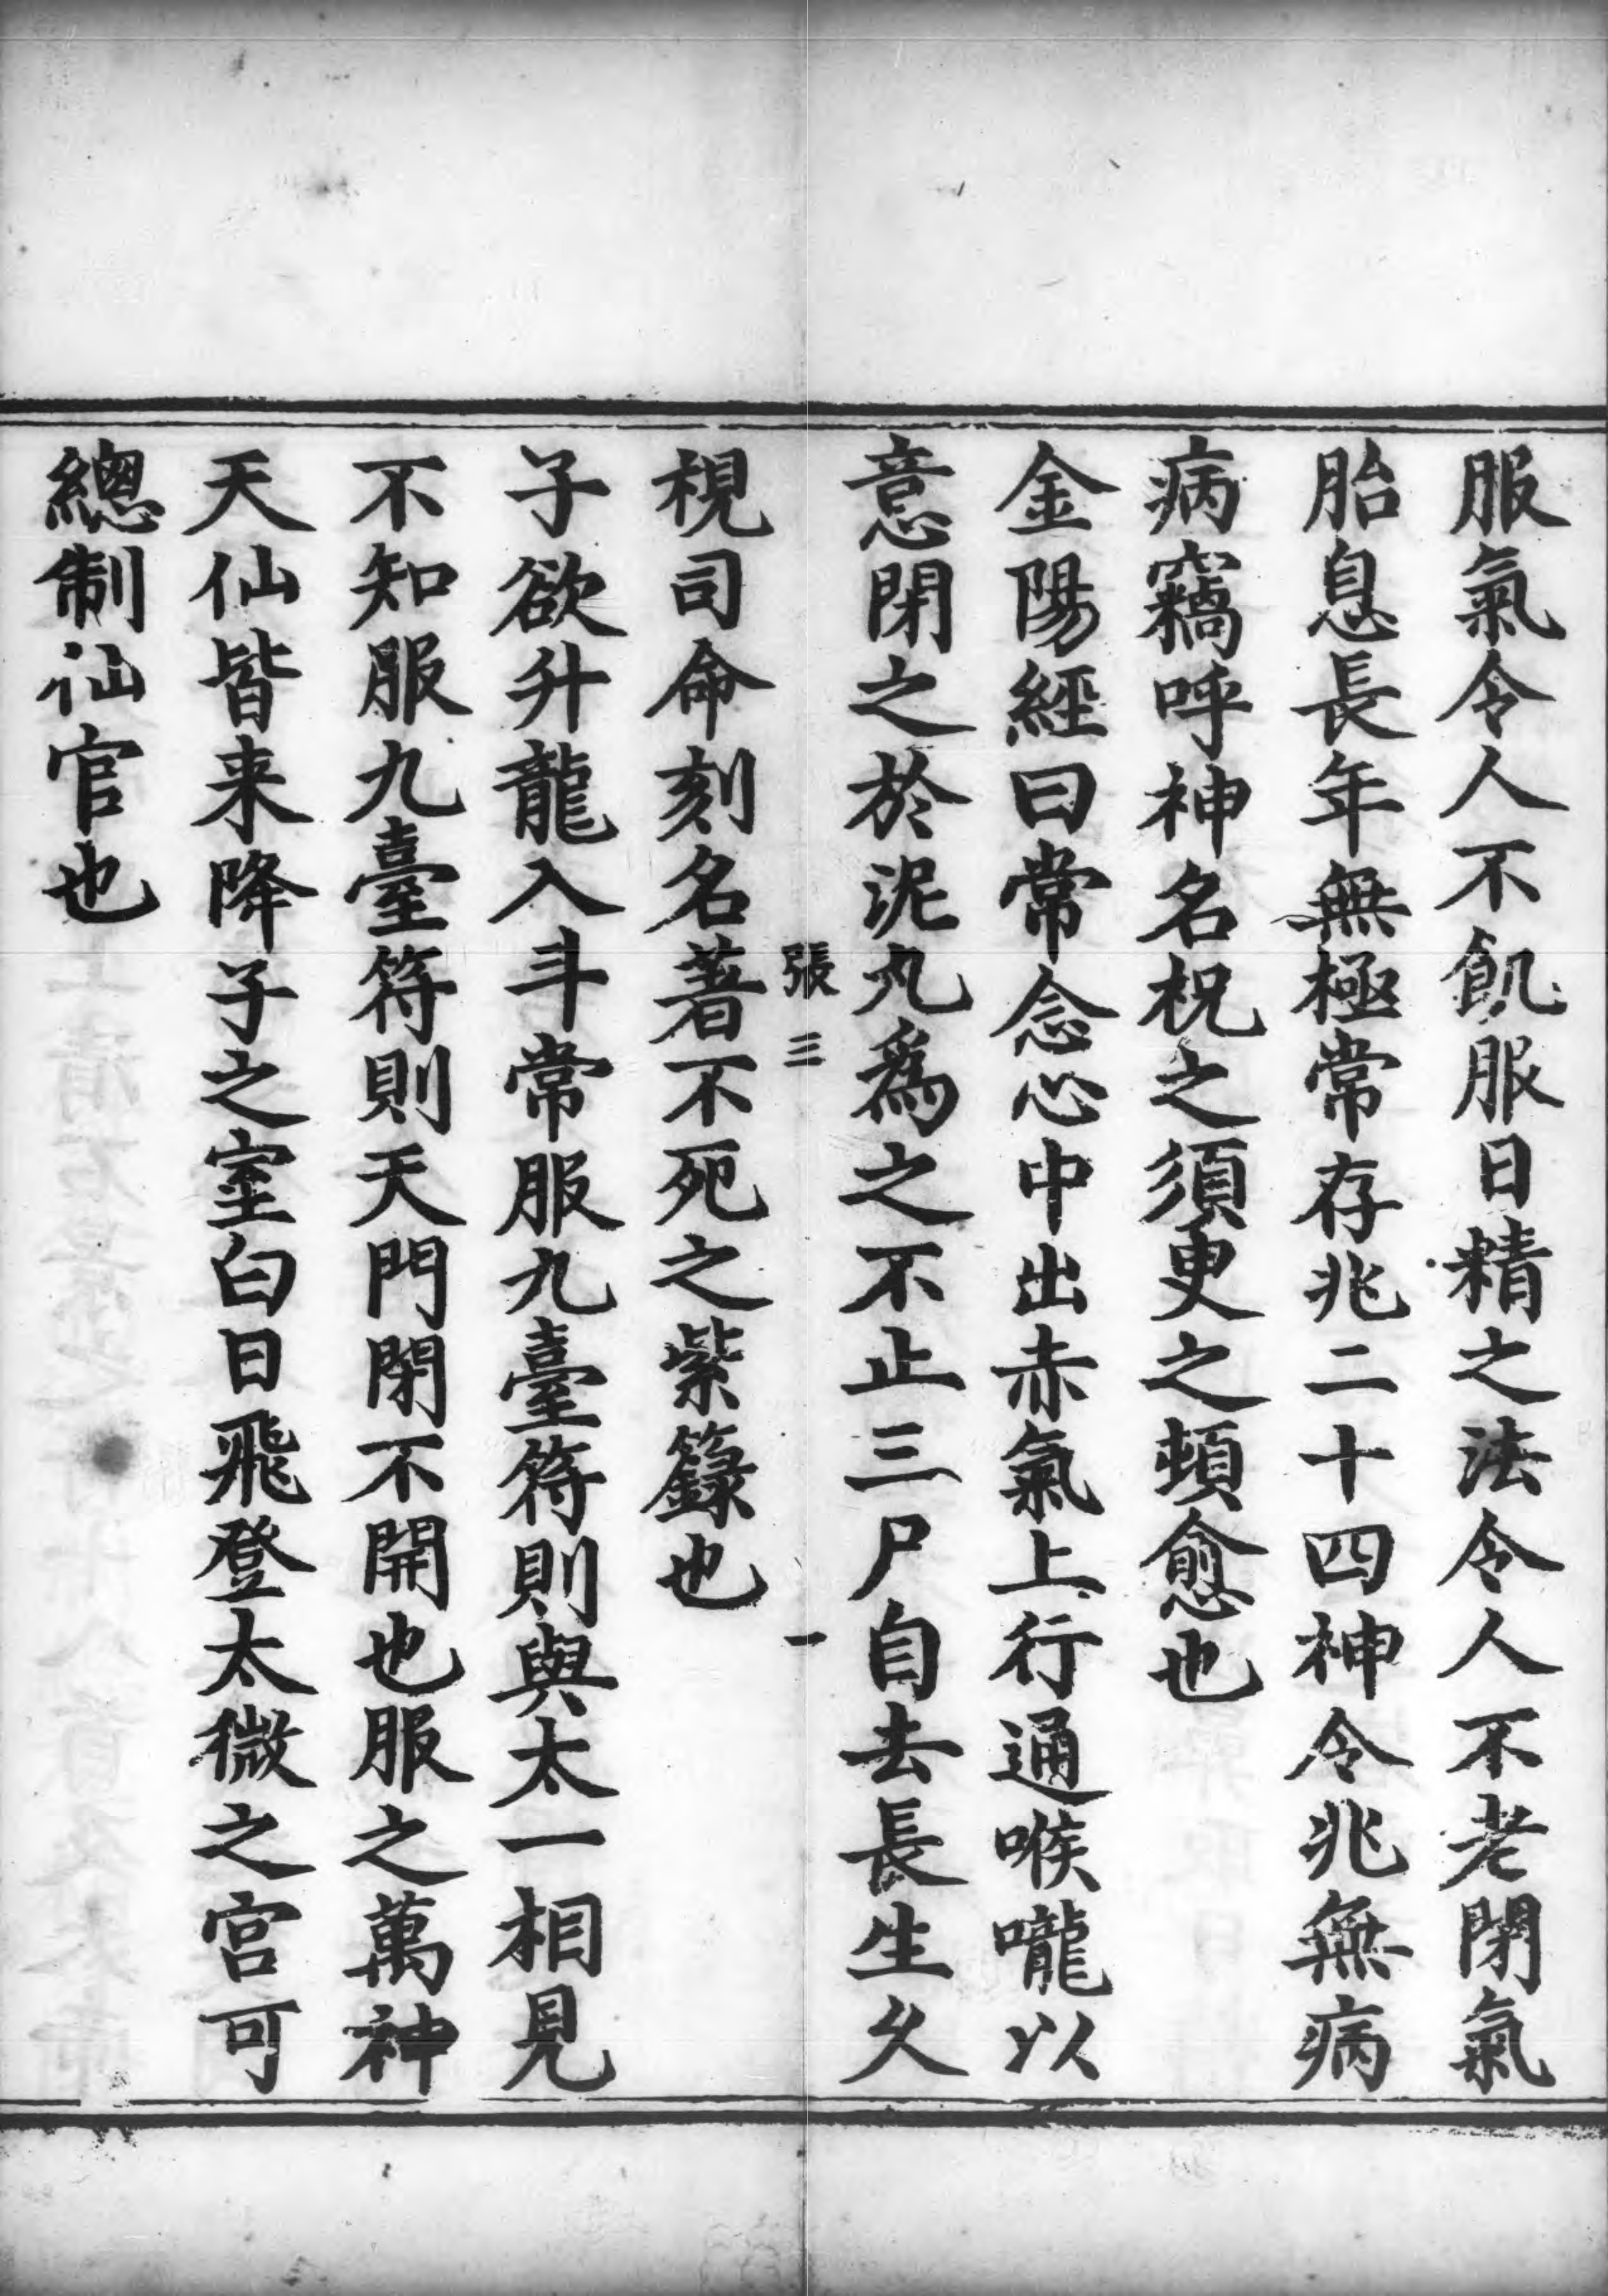 服氣令人不飢服日精之法令人不老閉氣
胎息長年無極常存兆二十四神令兆無病
病竊呼神名祝之須臾之頓愈也
金陽經曰常念心中出赤氣上行通喉嚨以
意閉之於泥丸為之不止三尸自去長生久
視司命刻名著不死之紫籙也
張三
一
子欲升龍入斗常服九臺符則與太一相見
不知服九臺符則天門閉不開也服之萬神
天仙皆来降子之室白日飛登太微之宮可
總制仙官也